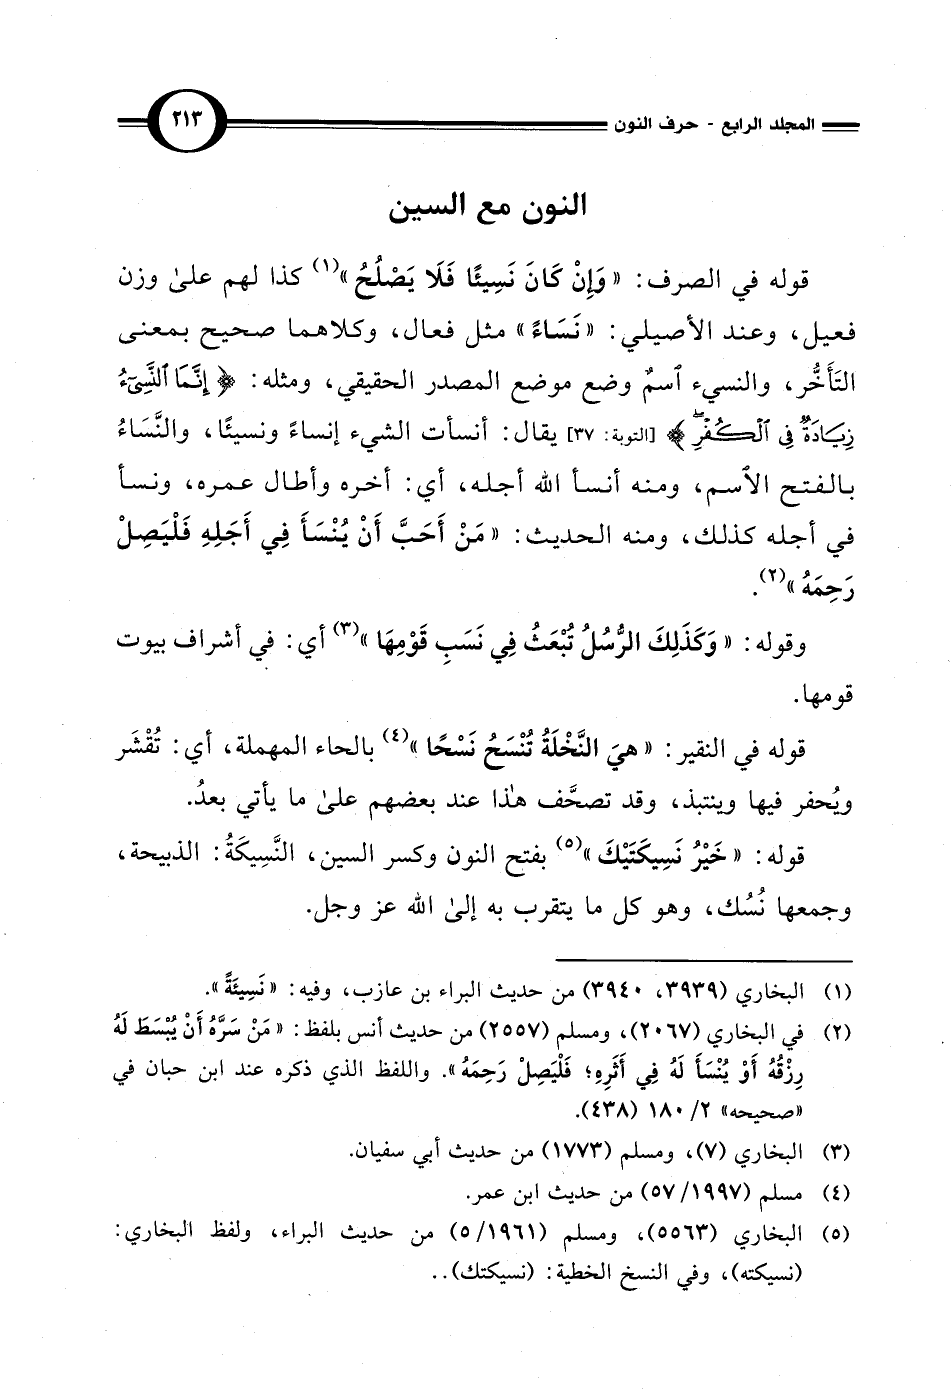 المجلد الرابع - حرف النون
٢١٣
النون مع السين
قوله في الصرف: «وَإِنْ كَانَ نَسِيئًا فَلَا يَصْلُحُ»(١) كذا لهم علىٰ وزن
فعيل، وعند الأصيلي: «نَسَاءً» مثل فعال، وكلاهما صحيح بمعنى
التَأَخُّر، والنسيء ٱسمٌ وضع موضع المصدر الحقيقي، ومثله: ﴿إِنَّمَا ٱلنَّسِيٓءُ
زِيَادَةٌ فِى ٱلْكُفْرِۖ﴾ [التوبة: ٣٧] يقال: أنسأت الشيء إنساءً ونسيئًا، والنَّسَاءُ
بالفتح الٱسم، ومنه أنسأ الله أجله، أي: أخره وأطال عمره، ونسأ
في أجله كذلك، ومنه الحديث: «مَنْ أَحَبَّ أَنْ يُنْسَأَ فِي أَجَلِهِ فَلْيَصِلْ
رَحِمَهُ»(٢).
وقوله: «وَكَذَلِكَ الرُّسُلُ تُبْعَثُ فِي نَسَبِ قَوْمِهَا»(٣) أي: في أشراف بيوت
قومها.
قوله في النقير: «هيَ النَّخْلَةُ تُنْسَحُ نَسْحًا»(٤) بالحاء المهملة، أي: تُقْشَر
ويُحفر فيها وينتبذ، وقد تصحَّف هٰذا عند بعضهم علىٰ ما يأتي بعدُ.
قوله: «خَيْرُ نَسِيكَتَيْكَ»(٥) بفتح النون وكسر السين، النَّسِيكَةُ: الذبيحة،
وجمعها نُسُك، وهو كل ما يتقرب به إلىٰ الله عز وجل.
(١) البخاري (٣٩٣٩، ٣٩٤٠) من حديث البراء بن عازب، وفيه: «نَسِيئَةً».
(٢) في البخاري (٢٠٦٧)، ومسلم (٢٥٥٧) من حديث أنس بلفظ: «مَنْ سَرَّهُ أَنْ يُبْسَطَ لَهُ
رِزْقُهُ أَوْ يُنْسَأَ لَهُ فِي أَثَرِهِ؛ فَلْيَصِلْ رَحِمَهُ». واللفظ الذي ذكره عند ابن حبان في
«صحيحه» ٢/ ١٨٠ (٤٣٨).
(٣) البخاري (٧)، ومسلم (١٧٧٣) من حديث أبي سفيان.
(٤) مسلم (١٩٩٧/ ٥٧) من حديث ابن عمر.
(٥) البخاري (٥٥٦٣)، ومسلم (١٩٦١/ ٥) من حديث البراء، ولفظ البخاري:
(نسيكته)، وفي النسخ الخطية: (نسيكتك)..